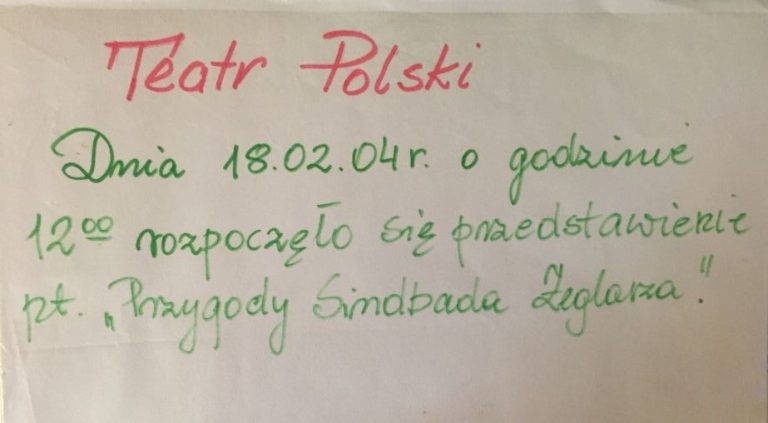 Teatr Polski
Dnia 18.02.04r. o godzinie
12⁰⁰ rozpoczęło się przedstawienie
pt. „Przygody Sindbada Żeglarza”.